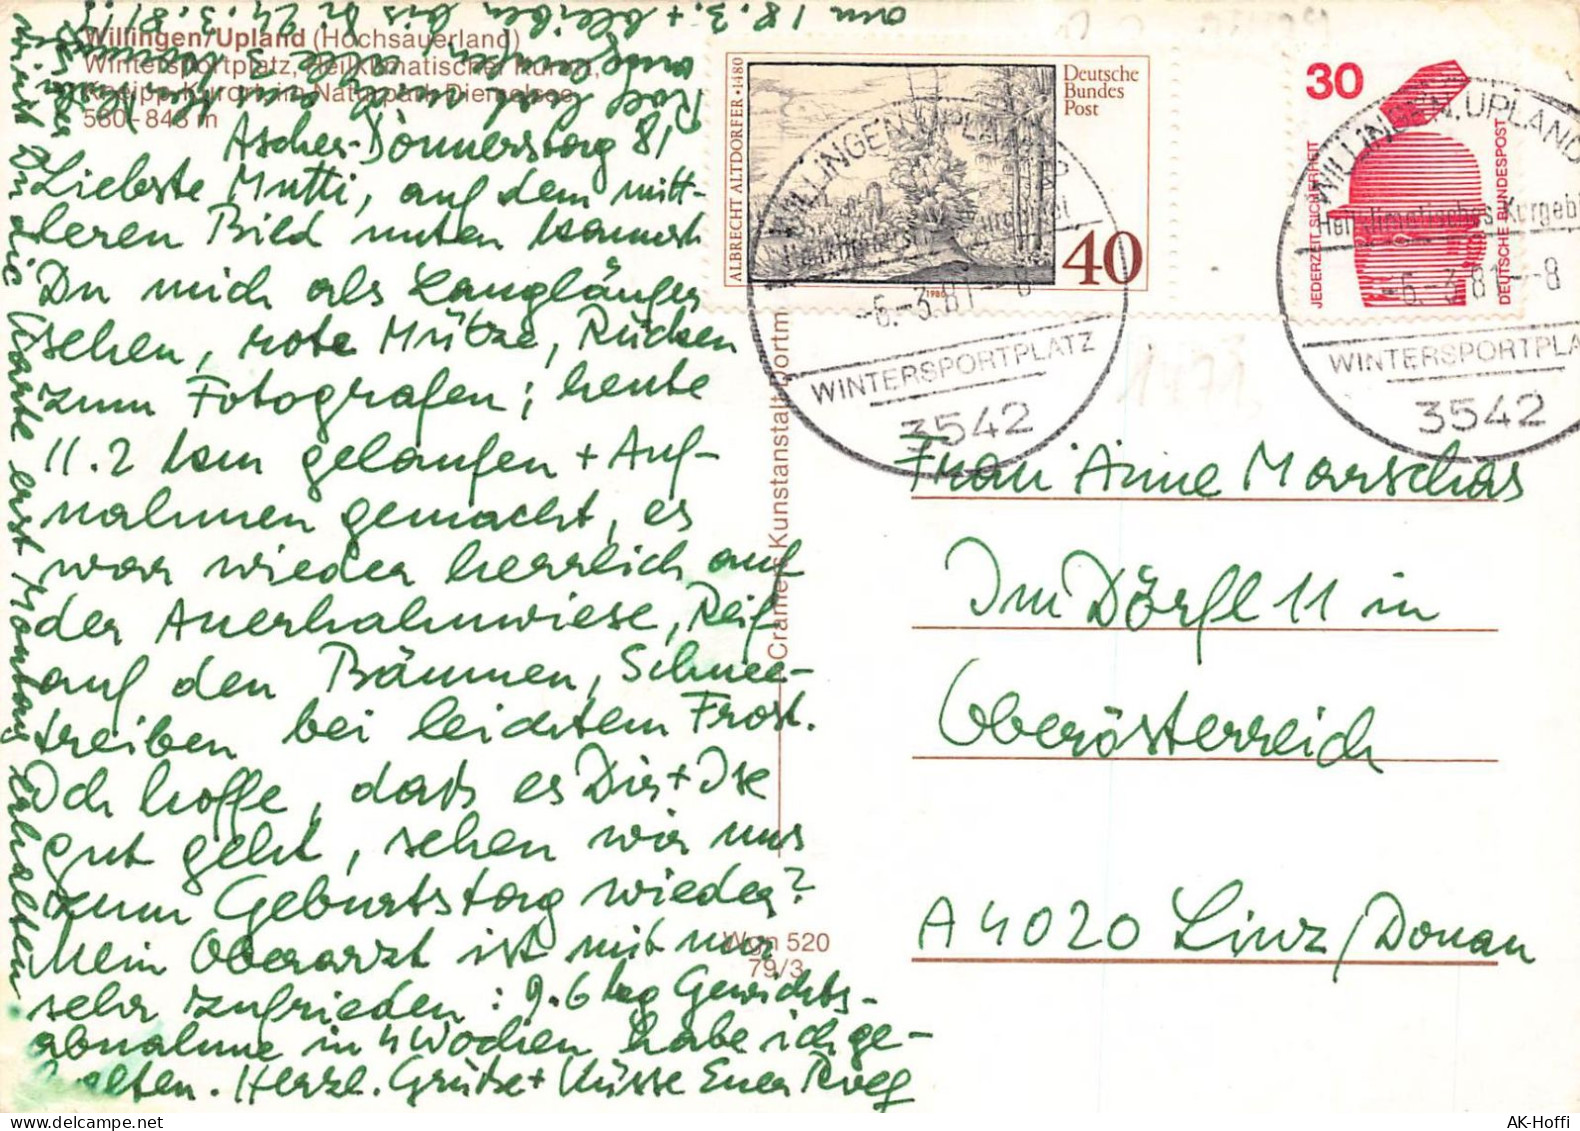 Willingen/Upland (Hochsauerland)
Wintersportplatz, Heilklimatischer Kurort,
Kneipp-Kurort im Naturpark Diemelsee
560-843 m
Ascher-Donnerstag 81
Liebste Mutti, auf dem mitt-
leren Bild unten kannst
Du mich als Langläufer
sehen, rote Mütze, Rücken
zum Fotografen; heute
11.2 km gelaufen + Auf-
nahmen gemacht, es
war wieder herrlich auf
der Auerhahnwiese, Reif
auf den Bäumen, Schnee-
treiben bei leichtem Frost.
Ich hoffe, dass es Dir + Ise
gut geht, sehen wir uns
zum Geburtstag wieder?
Mein Oberarzt ist mit mir
sehr zufrieden: 9.6 kg Gewichts-
abnahme in 4 Wochen habe ich ge-
halten. Herzl. Grüße + Küsse Euer Rolf
wirst Du die Karte erst Montag erhalten
am 18.3. + bleiben bis 24.3.81!!
Cramers Kunstanstalt Dortm
Wgn 520
79/3
ALBRECHT ALTDORFER · 1480
Deutsche
Bundes
Post
40
1980
30
JEDERZEIT SICHERHEIT
DEUTSCHE BUNDESPOST
WILLINGEN, UPLAND
Heilklimatisches Kurgebiet
-6.-3.81--8
WINTERSPORTPLATZ
3542
WILLINGEN, UPLAND
Heilklimatisches Kurgebi
-6.-3.81--8
WINTERSPORTPLA
3542
Frau Anne Marschas
Im Dörfl 11 in
Oberösterreich
A 4020 Linz/Donau
AK-Hoffi